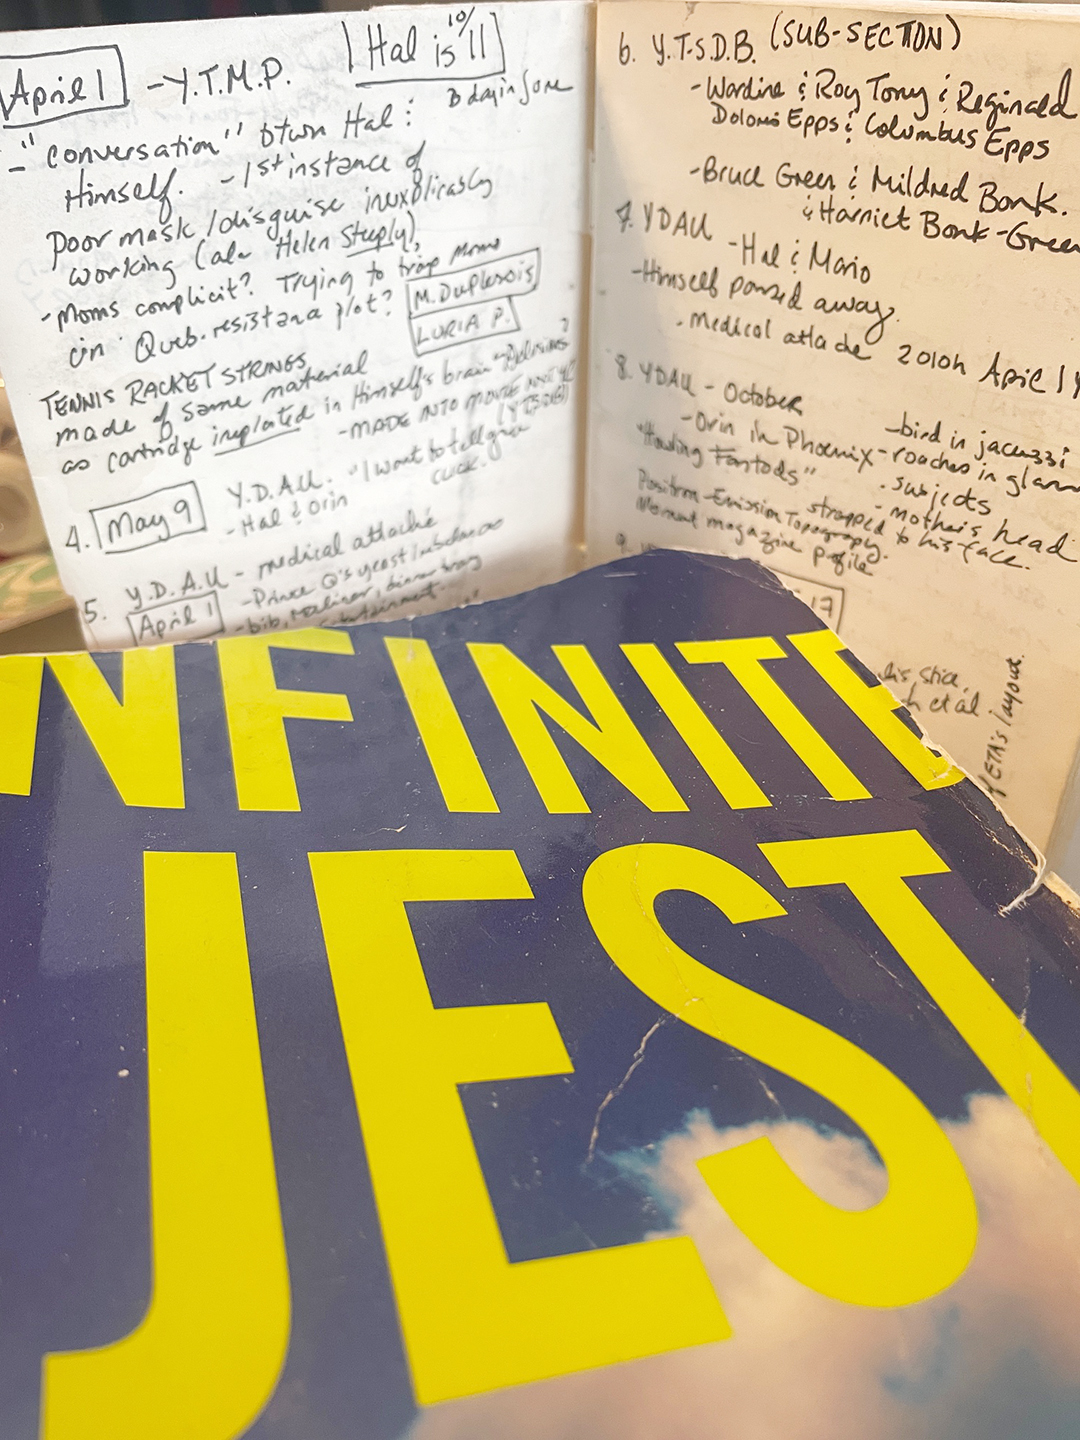 April 1 - Y.T.M.P. Hal is 10/11
B day in June
- "conversation" btwn Hal &
Himself. - 1st instance of
poor mask/disguise inexplicably
working (ala Helen Steeply),
- Moms complicit? Trying to trap Moms
in Queb. resistance plot? M. DuPlessis
LURIA P.
TENNIS RACKET STRINGS
made of same material
as cartridge implanted in Himself's brain
- MADE INTO MOVIE
4. May 9 Y.D.A.U. "I want to tell you"
- Hal & Orin
5. Y.D.A.U - medical attaché
April 1 - Prince Q's yeast
- bib, recliner, dinner tray
6. Y.T-S.D.B. (SUB-SECTION)
- Wardine & Roy Tony & Reginald
Dolores Epps & Columbus Epps
- Bruce Green & Mildred Bonk.
& Harriet Bonk-Green
7. YDAU
- Hal & Mario
- Himself passed away.
. medical attache 2010h April 1
8. YDAU - October
- Orin in Phoenix - roaches in
- bird in jacuzzi
"Howling Fantods" . subjects
- mother's head
strapped to his face.
Positron-Emission Topography.
Moment magazine profile
9.
17
his stice,
et al
ETA's layout.
INFINITE
JEST